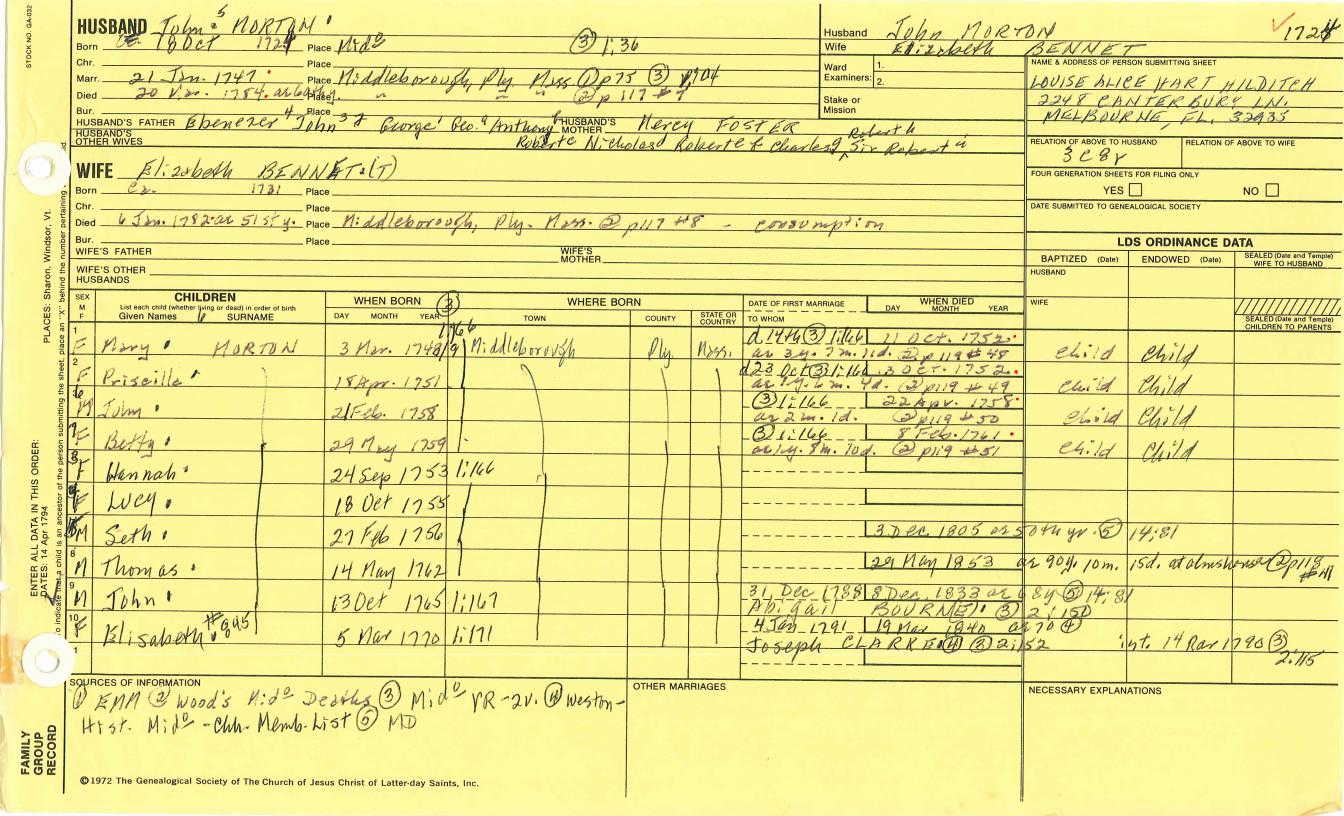 STOCK NO. GA-032
HUSBAND John⁵ MORTON
Born 18 Oct 1724 Place Mido ③ 1:36
Chr. Place
Marr. 21 Jan. 1747 Place Middleborough, Ply. Mass ① p75 ③
Died 20 1784. Place " " " ② p117 #7
Bur. Place
HUSBAND'S FATHER Ebenezer⁴ John³ ² George¹ Geo.ª Anthony HUSBAND'S MOTHER Mercy FOSTER
HUSBAND'S OTHER WIVES Robert Nicholas Robert Charles Sir Robert Robert
Husband John MORTON 1724
Wife Elizabeth BENNET
Ward Examiners: 1. 2.
Stake or Mission
NAME & ADDRESS OF PERSON SUBMITTING SHEET
LOUISE ALICE HART HILDITCH
2248 CANTERBURY LN.
MELBOURNE, FL. 32935
RELATION OF ABOVE TO HUSBAND RELATION OF ABOVE TO WIFE
3C8r
FOUR GENERATION SHEETS FOR FILING ONLY
YES NO
DATE SUBMITTED TO GENEALOGICAL SOCIETY
WIFE Elizabeth BENNET(T)
Born Ca. 1731 Place
Chr. Place
Died 6 Jan. 1782 ae 51st y. Place Middleborough, Ply. Mass. ② p117 #8 - consumption
Bur. Place
WIFE'S FATHER WIFE'S MOTHER
WIFE'S OTHER HUSBANDS
LDS ORDINANCE DATA
BAPTIZED (Date) ENDOWED (Date) SEALED (Date and Temple) WIFE TO HUSBAND
HUSBAND
WIFE
SEALED (Date and Temple) CHILDREN TO PARENTS
SEX M F CHILDREN WHEN BORN ③ WHERE BORN DATE OF FIRST MARRIAGE WHEN DIED
List each child (whether living or dead) in order of birth
Given Names SURNAME DAY MONTH YEAR TOWN COUNTY STATE OR COUNTRY TO WHOM DAY MONTH YEAR
1 F Mary MORTON 3 Mar. 1748/9 1:166 Middleborough Ply. Mass. d. 14th ③ 1:166 11 Oct. 1752 child Child
ae 3y. 7m. 11d. ② p119 #48
2 F Priscilla 18 Apr. 1751 d 23 Oct ③ 1:166 3 Oct. 1752 child Child
ae 1y. 6m. 4d. ② p119 #49
M John 21 Feb. 1758 ③ 1:166 22 Apr. 1758 child Child
ae 2m. 1d. ② p119 #50
F Betty 29 May 1759 ③ 1:166 8 Feb. 1761 child Child
ae 1y. 8m. 10d. ② p119 #51
F Hannah 24 Sep 1753 1:166
F Lucy 18 Oct 1755
M Seth 27 Feb 1756 3 Dec. 1805 ae 50th yr. ⑤ 14:81
8 M Thomas 14 May 1762 29 May 1853 ae 90y. 10m. 15d. at almshouse ② p118
9 M John 13 Oct 1765 1:167 31 Dec 1788 8 Dec. 1833 ae 68y ⑤ 14:81
Abigail BOURNE ③ 2:150
10 F Elisabeth #895 5 Mar 1770 1:171 4 Jan 1791 19 Mar 1840 ae 70 ④
Joseph CLARKE ④ ③ 2:152 int. 14 Mar 1790 ③ 2:115
SOURCES OF INFORMATION
① EMM ② Wood's Mido Deaths ③ Mido VR-2v. ④ Weston-
Hist. Mido - Chh. Memb. List ⑤ MD
OTHER MARRIAGES
NECESSARY EXPLANATIONS
©1972 The Genealogical Society of The Church of Jesus Christ of Latter-day Saints, Inc.
PLACES: Sharon, Windsor, Vt.
ENTER ALL DATA IN THIS ORDER:
DATES: 14 Apr 1794
To indicate that a child is an ancestor of the person submitting the sheet, place an "X" behind the number pertaining
FAMILY GROUP RECORD